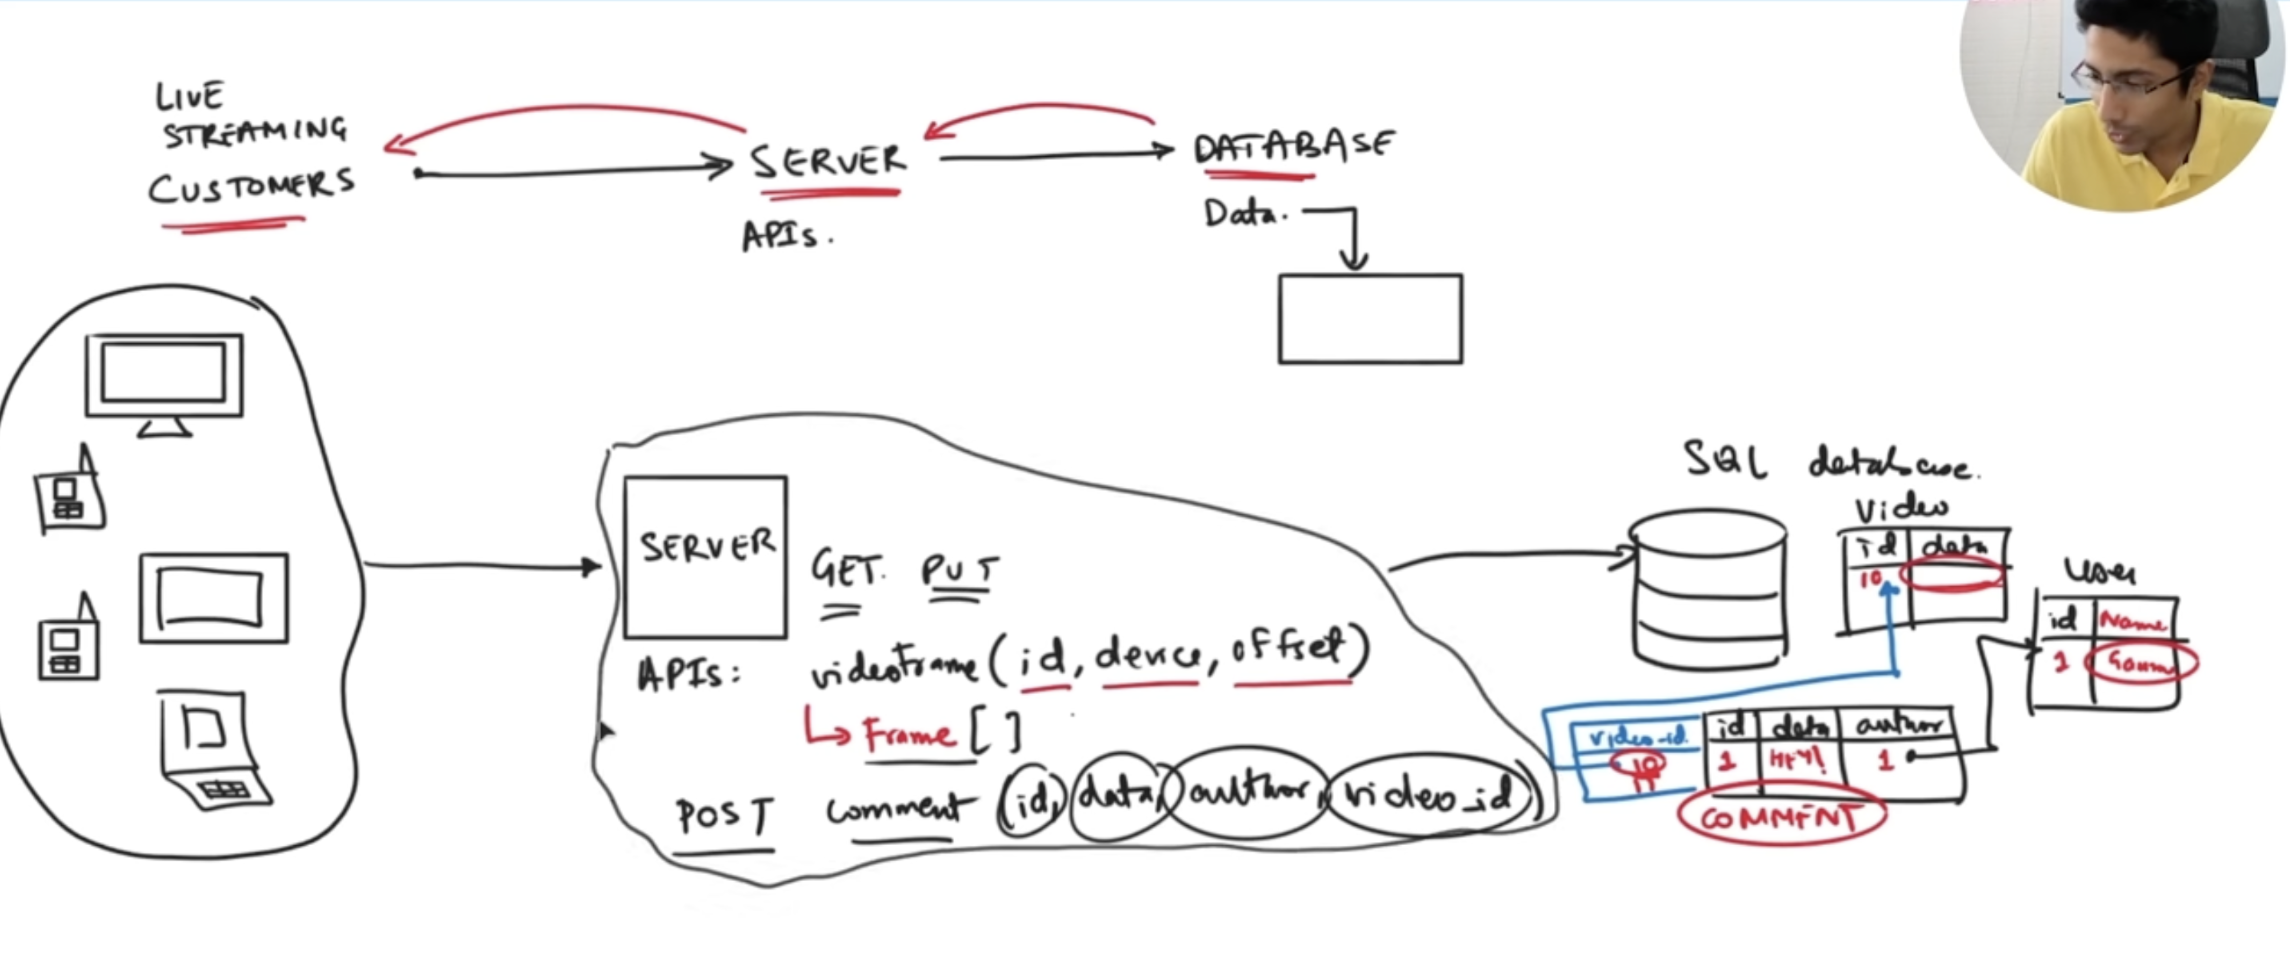 LIVE
STREAMING
CUSTOMERS
SERVER
APIs.
DATABASE
Data.
SERVER
GET. PUT
APIs: videoFrame (id, device, offset)
Frame []
POST comment (id, data, author, video_id)
SQL database.
Video
id data
10
User
id Name
1
video_id id data author
10 1 HEY! 1
COMMENT